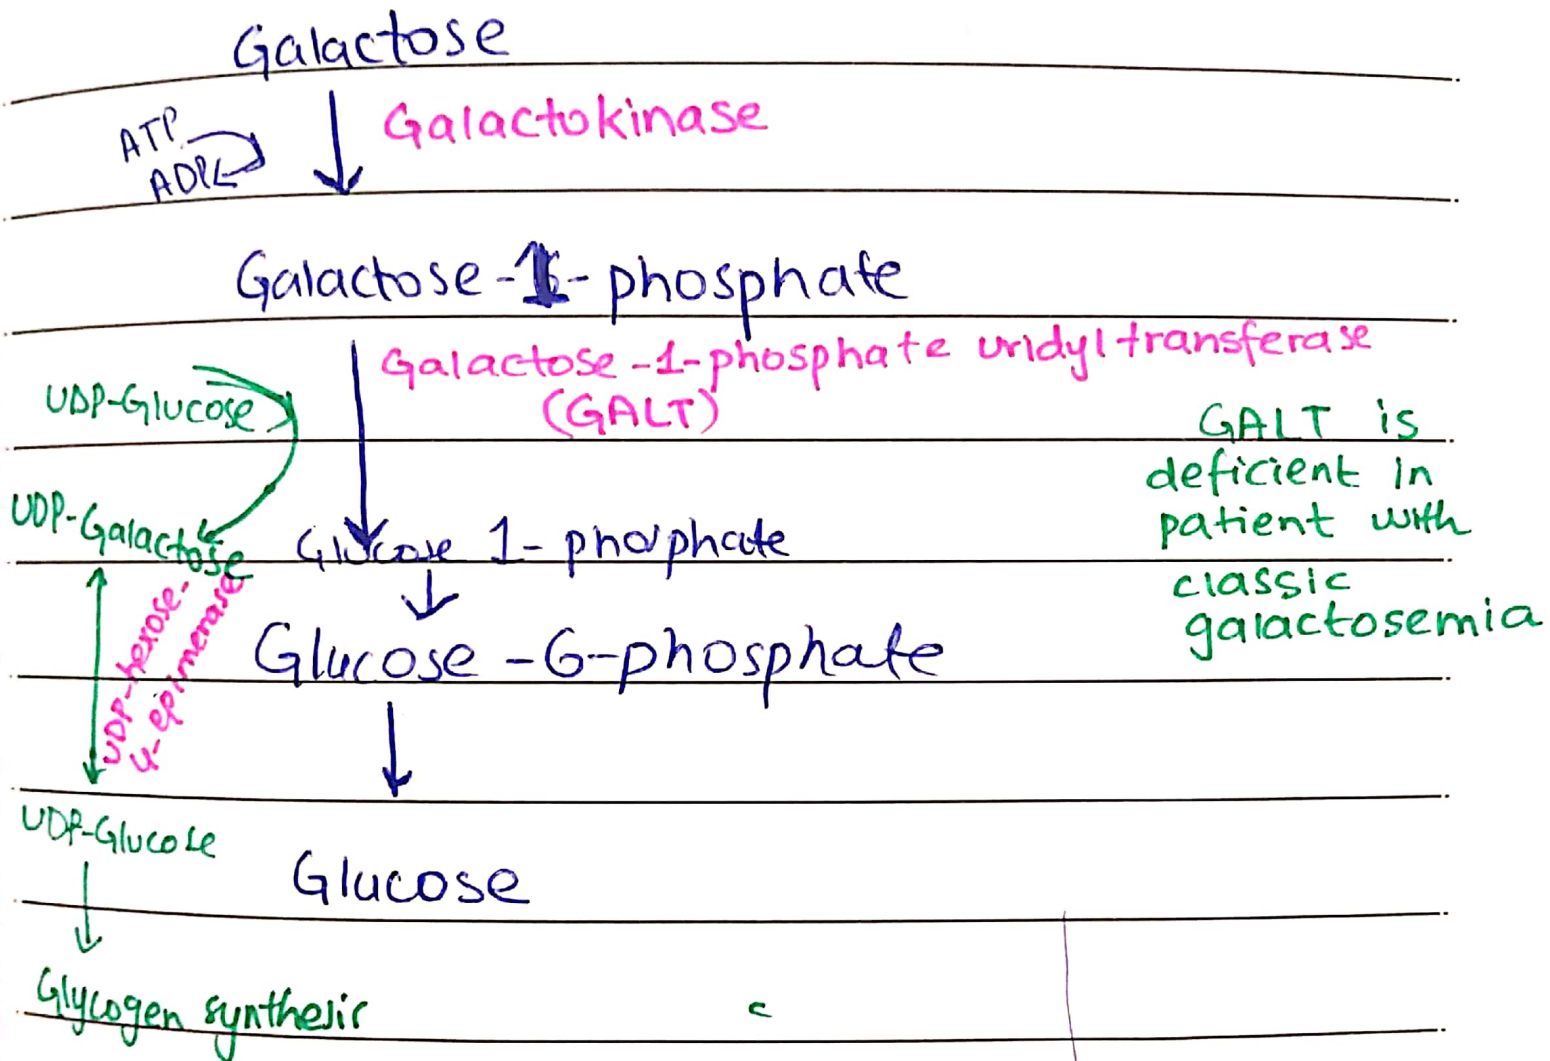 Galactose
ATP
ADP
Galactokinase
Galactose-1-phosphate
Galactose-1-phosphate uridyltransferase
(GALT)
UDP-Glucose
UDP-Galactose
Glucose 1-phosphate
GALT is
deficient in
patient with
classic
galactosemia
UDP-hexose-
4-epimerase
Glucose-6-phosphate
UDP-Glucose
Glucose
Glycogen synthesis
c